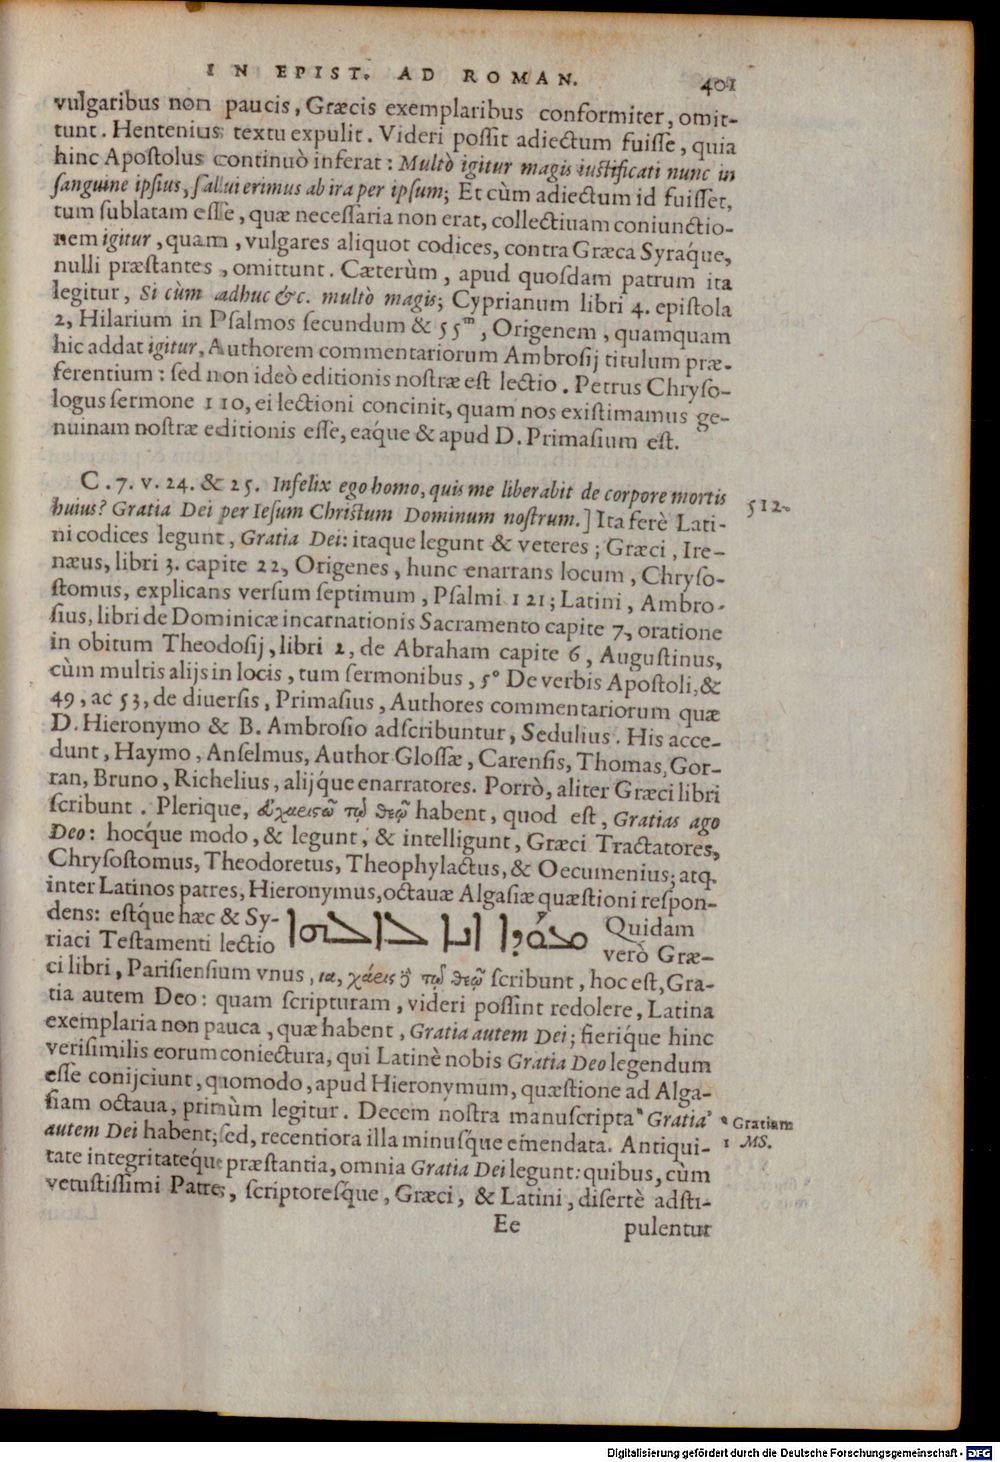 IN EPIST. AD ROMAN. 401
vulgaribus non paucis, Græcis exemplaribus conformiter, omit-
tunt. Hentenius textu expulit. Videri possit adiectum fuisse, quia
hinc Apostolus continuò inferat: Multò igitur magis iustificati nunc in
sanguine ipsius, salui erimus ab ira per ipsum; Et cùm adiectum id fuisset,
tum sublatam esse, quæ necessaria non erat, collectiuam coniunctio-
nem igitur, quam, vulgares aliquot codices, contra Græca Syraq́ue,
nulli præstantes, omittunt. Cæterùm, apud quosdam patrum ita
legitur, Si cùm adhuc &c. multò magis; Cyprianum libri 4. epistola
2, Hilarium in Psalmos secundum & 55ᵐ, Origenem, quamquam
hic addat igitur, Authorem commentariorum Ambrosij titulum præ-
ferentium: sed non ideò editionis nostræ est lectio. Petrus Chryso-
logus sermone 110, ei lectioni concinit, quam nos existimamus ge-
nuinam nostræ editionis esse, eaq́ue & apud D. Primasium est.
C. 7. v. 24. & 25. Infelix ego homo, quis me liberabit de corpore mortis
huius? Gratia Dei per Iesum Christum Dominum nostrum.] Ita ferè Lati-
512.
ni codices legunt, Gratia Dei: itaque legunt & veteres; Græci, Ire-
næus, libri 3. capite 22, Origenes, hunc enarrans locum, Chryso-
stomus, explicans versum septimum, Psalmi 121; Latini, Ambro-
sius, libri de Dominicæ incarnationis Sacramento capite 7, oratione
in obitum Theodosij, libri 2, de Abraham capite 6, Augustinus,
cùm multis alijs in locis, tum sermonibus, 5° De verbis Apostoli, &
49, ac 53, de diuersis, Primasius, Authores commentariorum quæ
D. Hieronymo & B. Ambrosio adscribuntur, Sedulius. His acce-
dunt, Haymo, Anselmus, Author Glossæ, Carensis, Thomas, Gor-
ran, Bruno, Richelius, alijq́ue enarratores. Porrò, aliter Græci libri
scribunt. Plerique, εὐχαριστῶ τῷ θεῷ habent, quod est, Gratias ago
Deo: hocq́ue modo, & legunt, & intelligunt, Græci Tractatores,
Chrysostomus, Theodoretus, Theophylactus, & Oecumenius; atq.
inter Latinos patres, Hieronymus, octauæ Algasiæ quæstioni respon-
dens: estq́ue hæc & Sy-
riaci Testamenti lectio ܡܘܕܐ ܐܢܐ ܠܐܠܗܐ Quidam
verò Græ-
ci libri, Parisiensium vnus, ια, χάρις δὲ τῷ θεῷ scribunt, hoc est, Gra-
tia autem Deo: quam scripturam, videri possint redolere, Latina
exemplaria non pauca, quæ habent, Gratia autem Dei; fieriq́ue hinc
verisimilis eorum coniectura, qui Latinè nobis Gratia Deo legendum
esse conijciunt, quomodo, apud Hieronymum, quæstione ad Alga-
siam octaua, primùm legitur. Decem nostra manuscripta " Gratia'
autem Dei habent; sed, recentiora illa minusq́ue emendata. Antiqui-
" Gratiam
1 MS.
tate integritateq́ue præstantia, omnia Gratia Dei legunt: quibus, cùm
vetustissimi Patres, scriptoresq́ue, Græci, & Latini, disertè adsti-
Ee pulentur
Digitalisierung gefördert durch die Deutsche Forschungsgemeinschaft - DFG